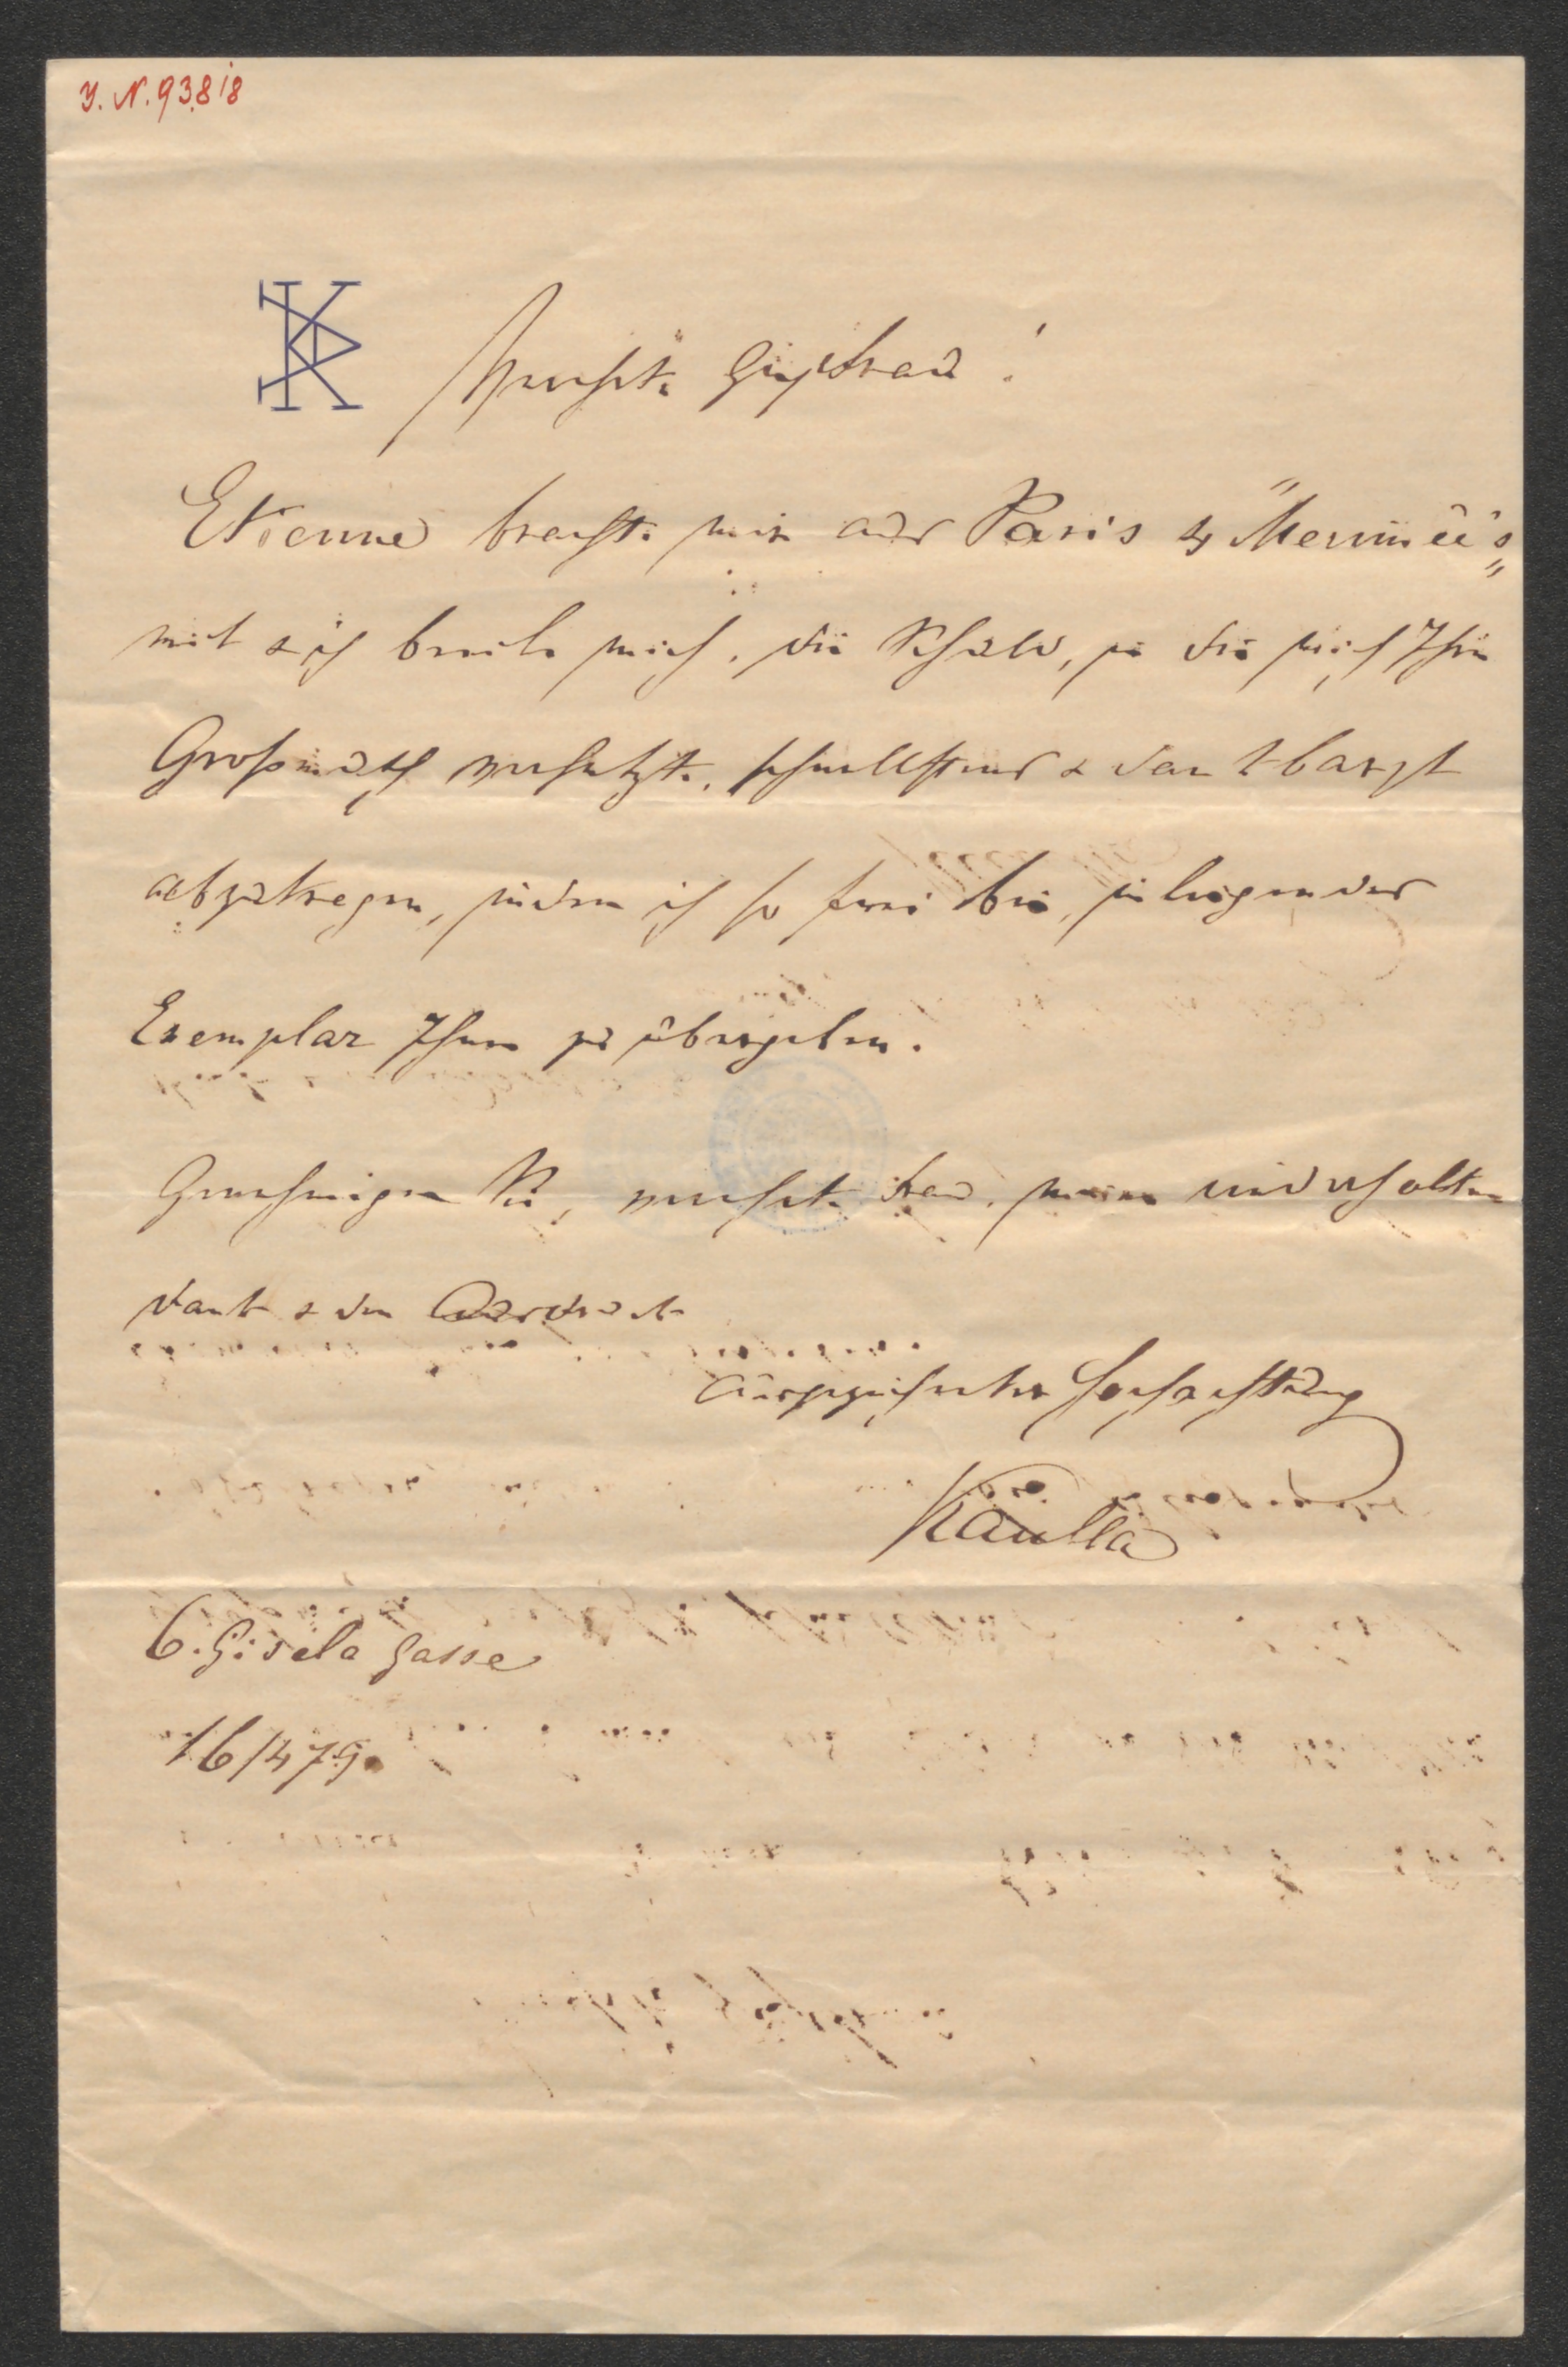 I. N. 93.818
Verehrte gnä Frau!
Etienne brachte mir aus Paris 4 "Merimée's"
mit & ich beeile mich, die Schuld, in die mich Ihre
Großmuth versetzte, schnellstens & dankbarst
abzutragen, indem ich so frei bin, inliegendes
Exemplar Ihnen zu übergeben.
Genehmigen Sie, verehrte Frau, meinen wiederholten
Dank & den Ausdruck
ausgezeichneter Hochachtung
Kaulla
6. Gisela gasse
16/4 79.